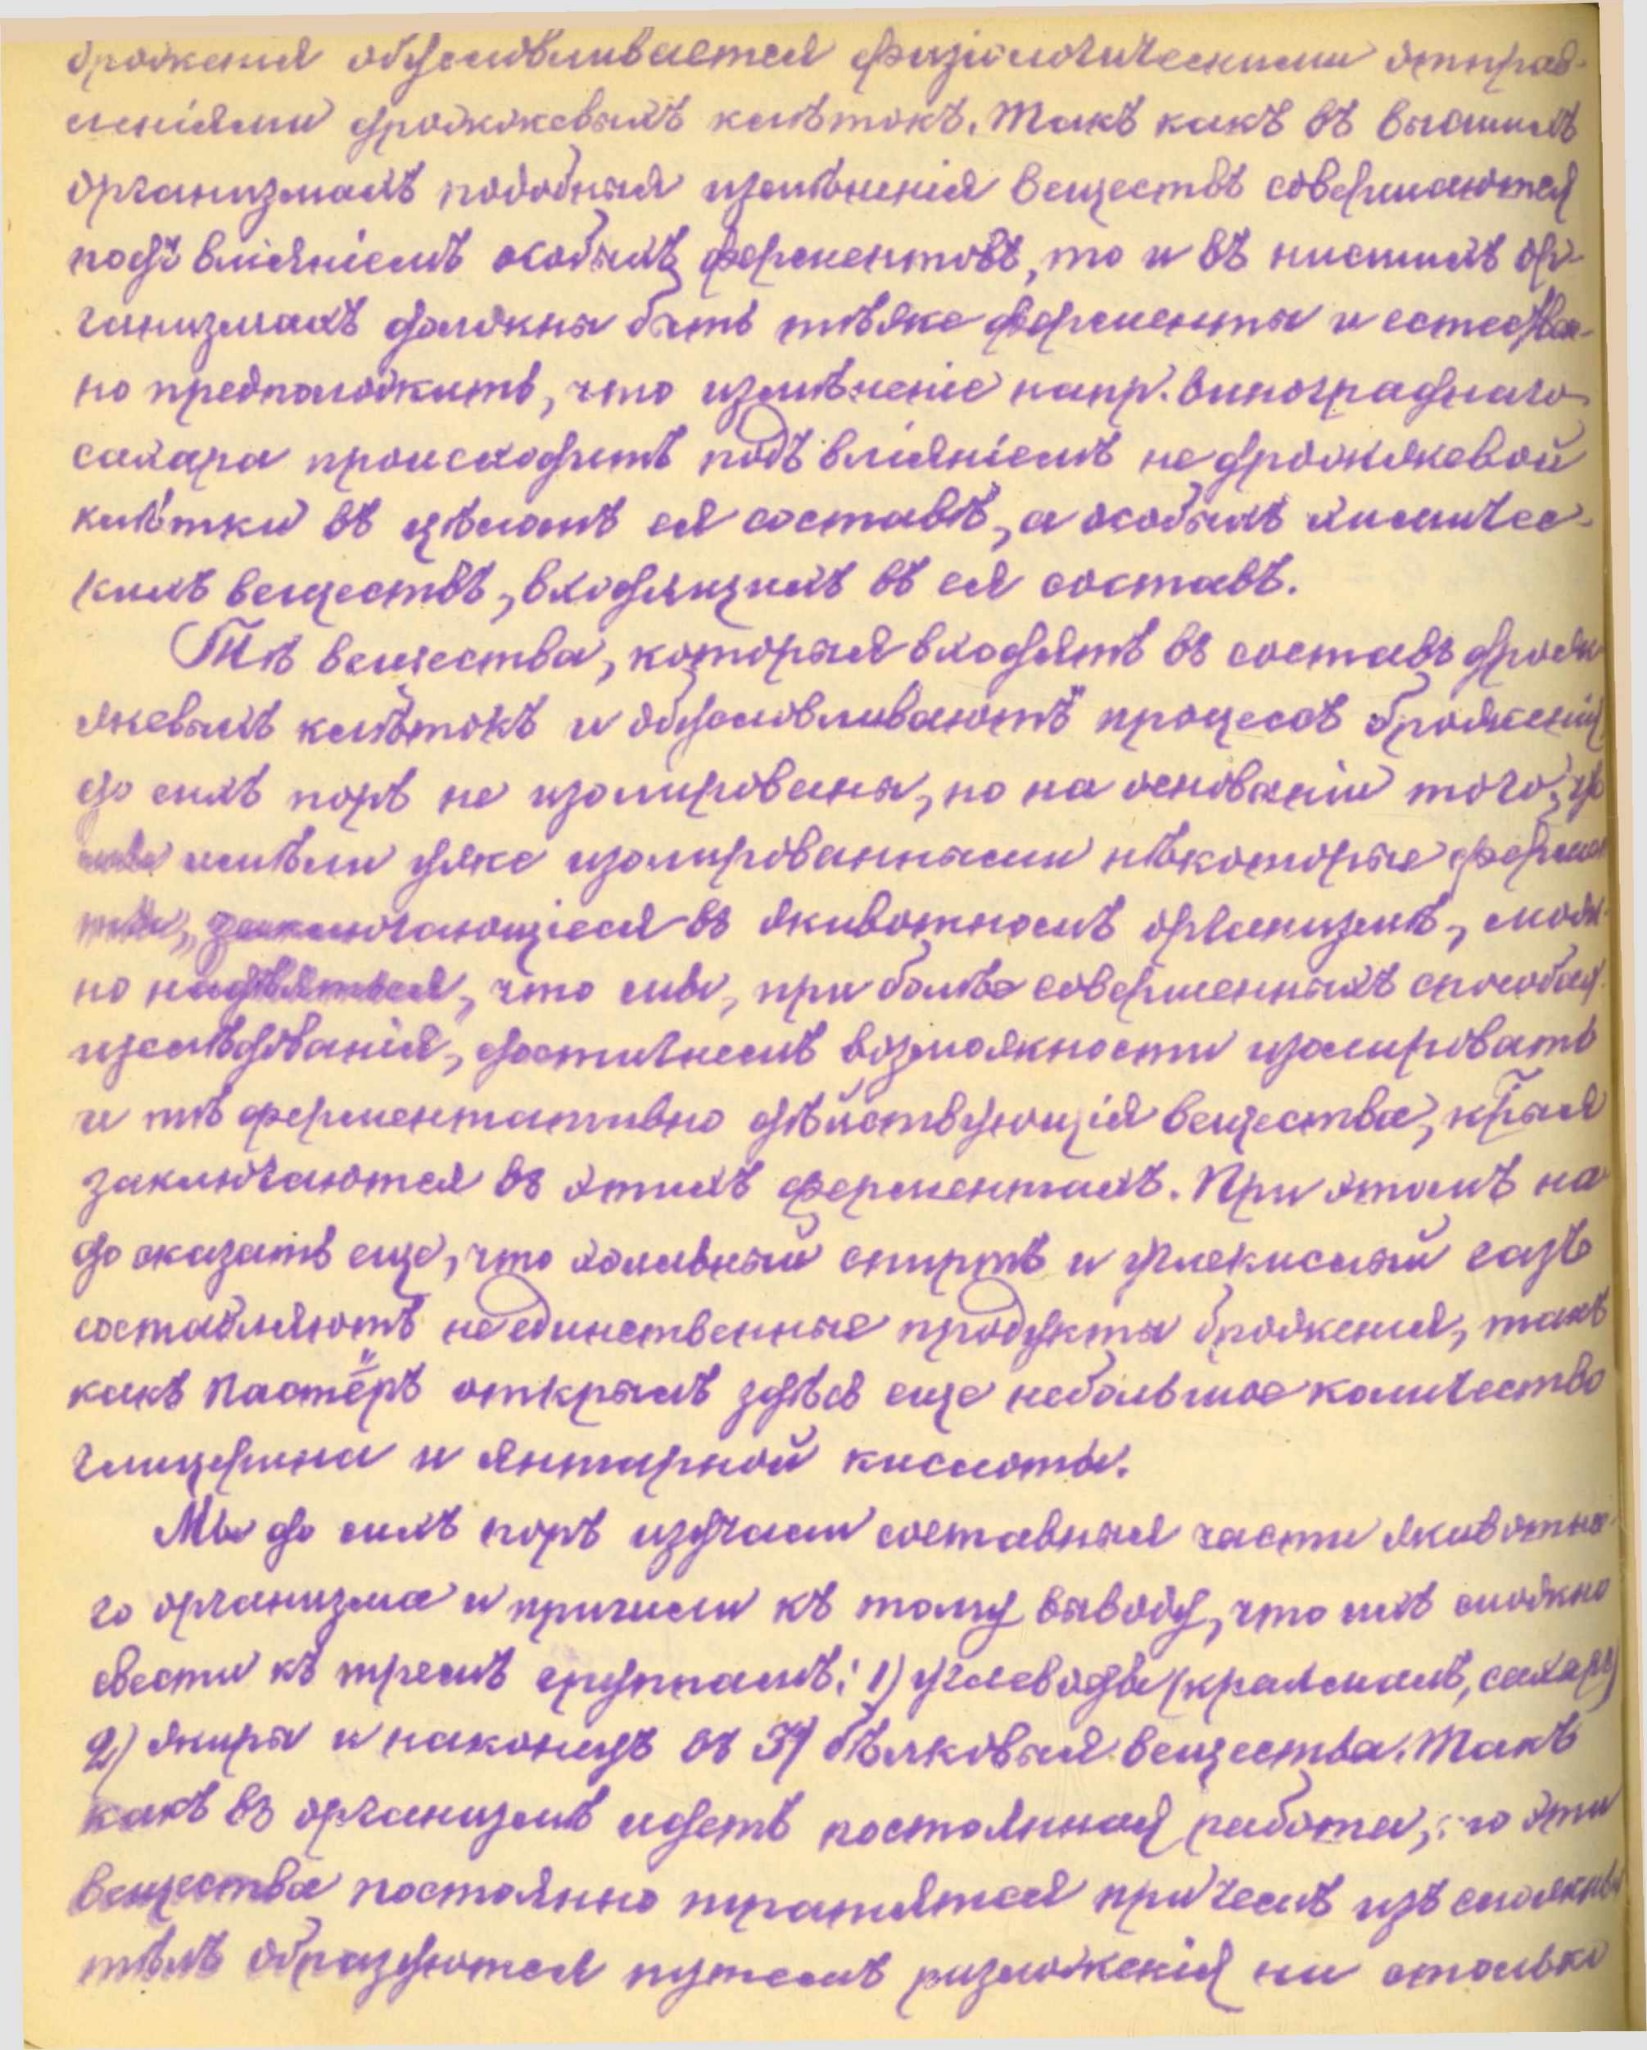 броженія обусловливается физіологическими отправ-
леніями дрожжевыхъ клѣтокъ. Такъ какъ въ высшихъ
организмахъ подобныя измѣненія веществъ совершаются
подъ вліяніемъ особыхъ ферментовъ, то и въ низшихъ ор-
ганизмахъ должны быть тѣже ферменты и естествен-
но предположить, что измѣненіе напр. винограднаго
сахара происходитъ подъ вліяніемъ не дрожжевой
клѣтки въ цѣломъ ея составѣ, а особыхъ химичес-
кихъ веществъ, входящихъ въ ея составъ.
Тѣ вещества, которыя входятъ въ составъ дрож-
жевыхъ клѣтокъ и обусловливаютъ процессъ броженія,
до сихъ поръ не изолированы, но на основаніи того, что
мы имѣли уже изолированными нѣкоторые фермен-
ты, заключающіеся въ животномъ организмѣ, мож-
но надѣяться, что мы, при болѣе совершенныхъ способах
изслѣдованія, достигнемъ возможности изолировать
и тѣ ферментативно дѣйствующія вещества, к̅рыя
заключаются въ этихъ ферментахъ. При этомъ на
до сказать еще, что хольный спиртъ и углекислый газъ
составляютъ не единственные продукты броженія, такъ
какъ Пастёръ открылъ здѣсь еще небольшое количество
глицерина и янтарной кислоты.
Мы до сихъ поръ изучали составныя части животна-
го организма и пришли къ тому выводу, что ихъ можно
свести къ тремъ группамъ: 1) углеводы (крахмалъ, сахаръ)
2) жиры и наконецъ въ 3) бѣлковыя вещества. Такъ
какъ въ организмѣ идетъ постоянная работа, то эти
вещества постоянно тратятся при чемъ изъ сложны
тѣлъ образуются путемъ разложенія не столько